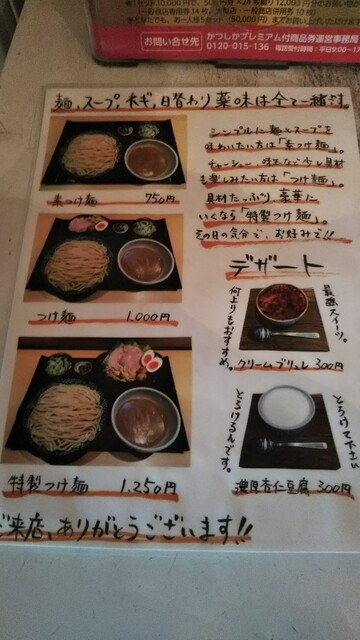 額10,000円で、500円券×24枚綴り12,000円分のお買い物が
お問い合せ先 かつしかプレミアム付商品券運営事務局
0120-015-136 電話受付時間：平日9:00〜17
麺、スープ、ネギ、日替わり薬味は全て一緒です。
シンプルに麺とスープを
味わいたい方は「素つけ麺」。
チャーシュー、味玉など少し具材
も楽しみたい方は「つけ麺」。
具材たっぷり、豪華に
いくなら「特製つけ麺」。
その日の気分で、お好みで!!
素つけ麺 750円
つけ麺 1.000円
特製つけ麺 1.250円
デザート
最強スイーツ。
何よりもおすすめ。
クリームブリュレ 300円
とろけて下さい
とろけるんです。
濃厚杏仁豆腐 300円
ご来店、ありがとうございます!!